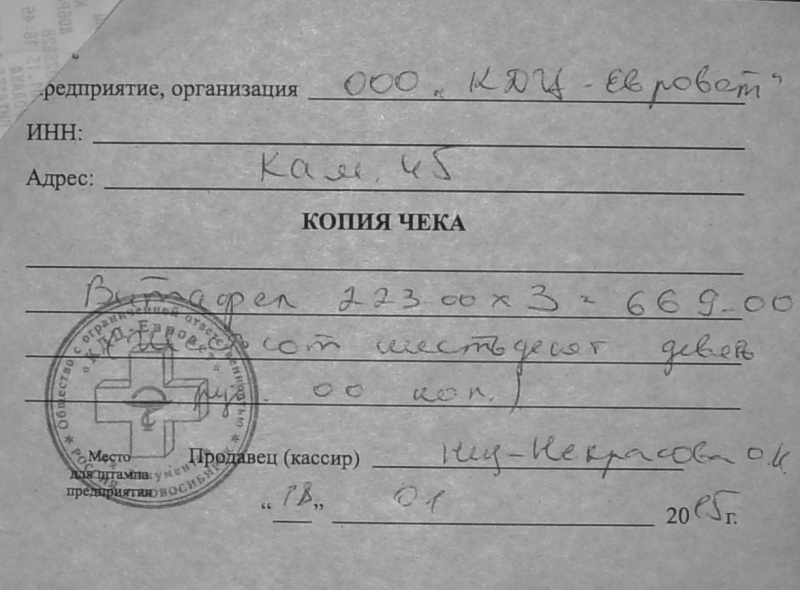 предприятие, организация ООО „КДЦ-Евровет"
ИНН:
Адрес: Кам. 45
КОПИЯ ЧЕКА
Витафел 223-00 х 3 = 669-00
(шестьсот шестьдесят девять
руб. 00 коп.)
Общество с ограниченной ответственностью
РОССИЯ НОВОСИБИРСК
Место
для штампа
предприятия
Продавец (кассир) Некрасова О.И.
“18” 01 2005 г.